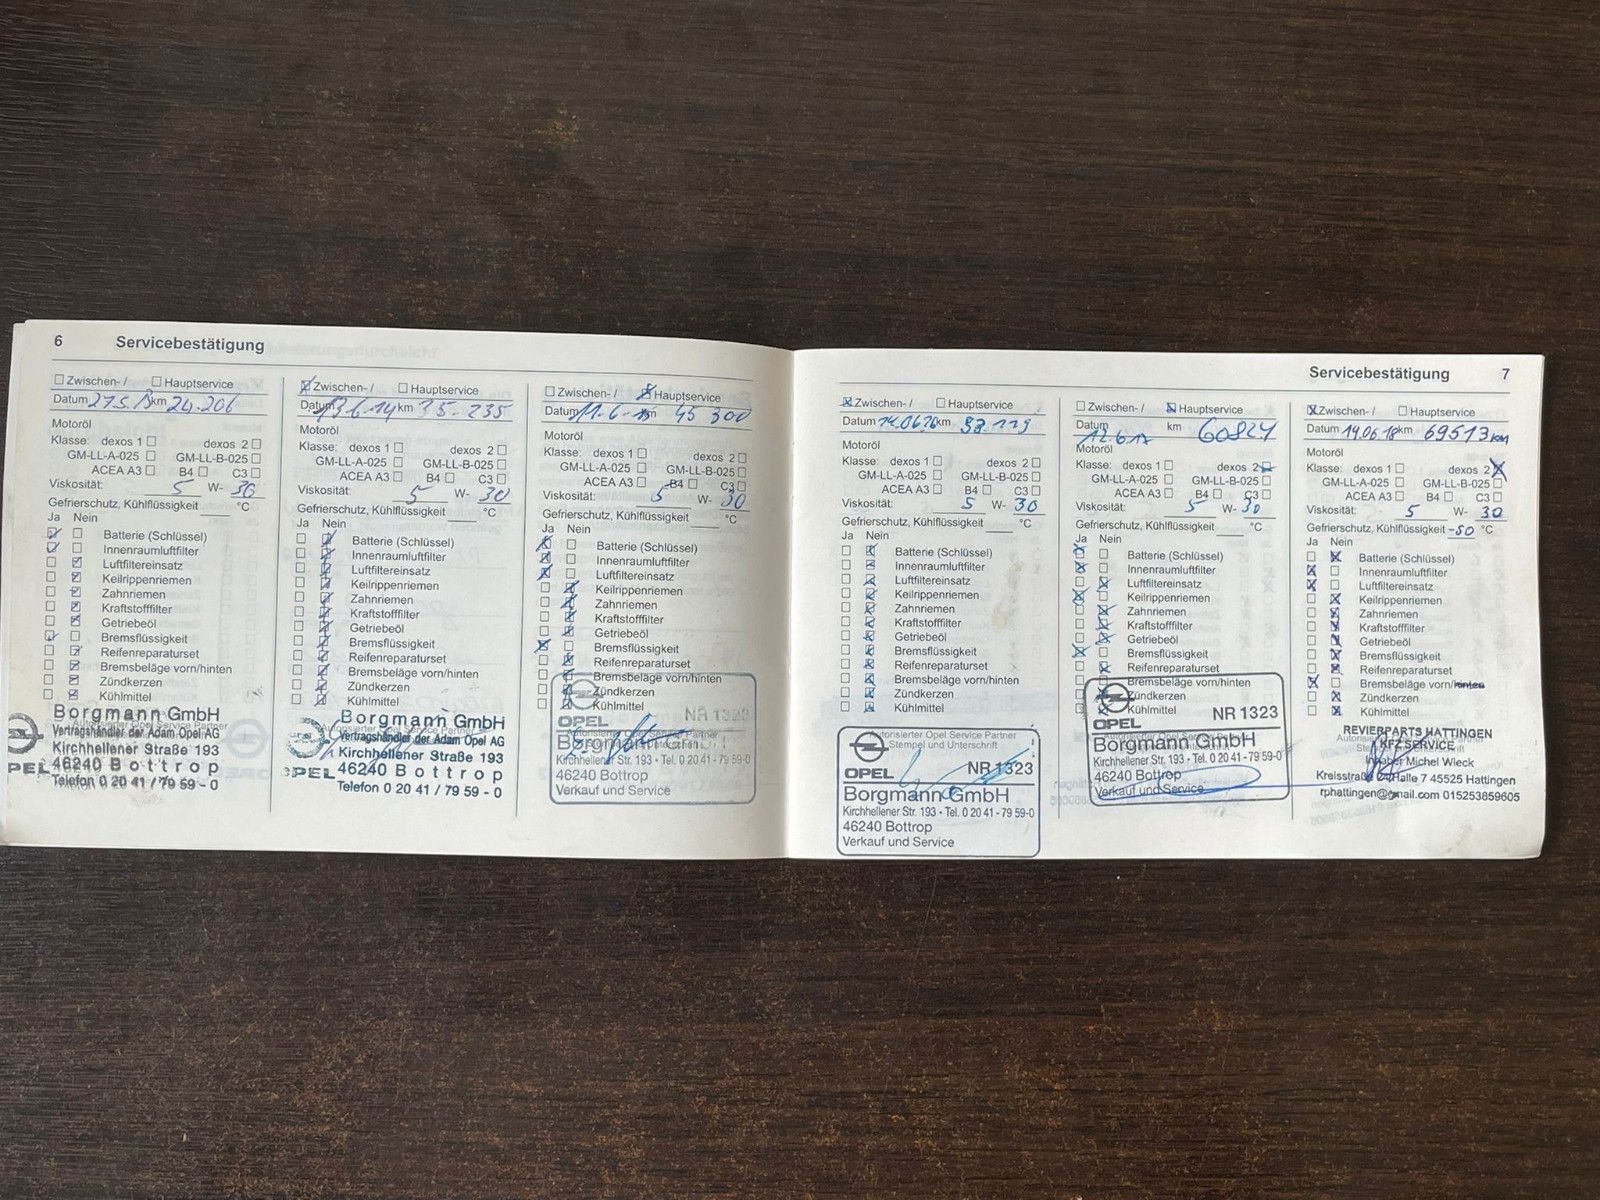 6 Servicebestätigung
☐ Zwischen- / ☐ Hauptservice
Datum 27.5.13 km 24.206
Motoröl
Klasse: dexos 1 ☐ dexos 2 ☐
GM-LL-A-025 ☐ GM-LL-B-025 ☐
ACEA A3 ☐ B4 ☐ C3 ☐
Viskosität: 5 W- 30
Gefrierschutz, Kühlflüssigkeit ___ °C
Ja Nein
Batterie (Schlüssel)
Innenraumluftfilter
Luftfiltereinsatz
Keilrippenriemen
Zahnriemen
Kraftstofffilter
Getriebeöl
Bremsflüssigkeit
Reifenreparaturset
Bremsbeläge vorn/hinten
Zündkerzen
Kühlmittel
Borgmann GmbH
Vertragshändler der Adam Opel AG
Kirchhellener Straße 193
OPEL 46240 Bottrop
Telefon 0 20 41 / 79 59 - 0
☒ Zwischen- / ☐ Hauptservice
Datum 13.6.14 km 35.235
Motoröl
Klasse: dexos 1 ☐ dexos 2 ☐
GM-LL-A-025 ☐ GM-LL-B-025 ☐
ACEA A3 ☐ B4 ☐ C3 ☐
Viskosität: 5 W- 30
Gefrierschutz, Kühlflüssigkeit ___ °C
Ja Nein
Batterie (Schlüssel)
Innenraumluftfilter
Luftfiltereinsatz
Keilrippenriemen
Zahnriemen
Kraftstofffilter
Getriebeöl
Bremsflüssigkeit
Reifenreparaturset
Bremsbeläge vorn/hinten
Zündkerzen
Kühlmittel
Borgmann GmbH
Vertragshändler der Adam Opel AG
Kirchhellener Straße 193
OPEL 46240 Bottrop
Telefon 0 20 41 / 79 59 - 0
☐ Zwischen- / ☒ Hauptservice
Datum 11.6.15 km 45 300
Motoröl
Klasse: dexos 1 ☐ dexos 2 ☐
GM-LL-A-025 ☐ GM-LL-B-025 ☐
ACEA A3 ☐ B4 ☐ C3 ☐
Viskosität: 5 W- 30
Gefrierschutz, Kühlflüssigkeit ___ °C
Ja Nein
Batterie (Schlüssel)
Innenraumluftfilter
Luftfiltereinsatz
Keilrippenriemen
Zahnriemen
Kraftstofffilter
Getriebeöl
Bremsflüssigkeit
Reifenreparaturset
Bremsbeläge vorn/hinten
Zündkerzen
Kühlmittel
OPEL NR 1323
Borgmann GmbH
Kirchhellener Str. 193 • Tel. 0 20 41 - 79 59-0
46240 Bottrop
Verkauf und Service
Servicebestätigung 7
☒ Zwischen- / ☐ Hauptservice
Datum 14.06.16 km
Motoröl
Klasse: dexos 1 ☐ dexos 2 ☐
GM-LL-A-025 ☐ GM-LL-B-025 ☐
ACEA A3 ☐ B4 ☐ C3 ☐
Viskosität: 5 W- 30
Gefrierschutz, Kühlflüssigkeit ___ °C
Ja Nein
Batterie (Schlüssel)
Innenraumluftfilter
Luftfiltereinsatz
Keilrippenriemen
Zahnriemen
Kraftstofffilter
Getriebeöl
Bremsflüssigkeit
Reifenreparaturset
Bremsbeläge vorn/hinten
Zündkerzen
Kühlmittel
Autorisierter Opel Service Partner
Stempel und Unterschrift
OPEL NR 1323
Borgmann GmbH
Kirchhellener Str. 193 • Tel. 0 20 41 - 79 59-0
46240 Bottrop
Verkauf und Service
☐ Zwischen- / ☒ Hauptservice
Datum 12.6.17 km 60824
Motoröl
Klasse: dexos 1 ☐ dexos 2 ☒
GM-LL-A-025 ☐ GM-LL-B-025 ☐
ACEA A3 ☐ B4 ☐ C3 ☐
Viskosität: 5 W- 30
Gefrierschutz, Kühlflüssigkeit ___ °C
Ja Nein
Batterie (Schlüssel)
Innenraumluftfilter
Luftfiltereinsatz
Keilrippenriemen
Zahnriemen
Kraftstofffilter
Getriebeöl
Bremsflüssigkeit
Reifenreparaturset
Bremsbeläge vorn/hinten
Zündkerzen
Kühlmittel
OPEL NR 1323
Borgmann GmbH
Kirchhellener Str. 193 • Tel. 0 20 41 - 79 59-0
46240 Bottrop
Verkauf und Service
☒ Zwischen- / ☐ Hauptservice
Datum 14.06.18 km 69513 km
Motoröl
Klasse: dexos 1 ☐ dexos 2 ☒
GM-LL-A-025 ☐ GM-LL-B-025 ☐
ACEA A3 ☐ B4 ☐ C3 ☐
Viskosität: 5 W- 30
Gefrierschutz, Kühlflüssigkeit -50 °C
Ja Nein
Batterie (Schlüssel)
Innenraumluftfilter
Luftfiltereinsatz
Keilrippenriemen
Zahnriemen
Kraftstofffilter
Getriebeöl
Bremsflüssigkeit
Reifenreparaturset
Bremsbeläge vorn/hinten
Zündkerzen
Kühlmittel
REVIERPARTS HATTINGEN
KFZ SERVICE
Inhaber Michel Wieck
Kreisstraße Halle 7 45525 Hattingen
rphattingen@gmail.com 015253659605